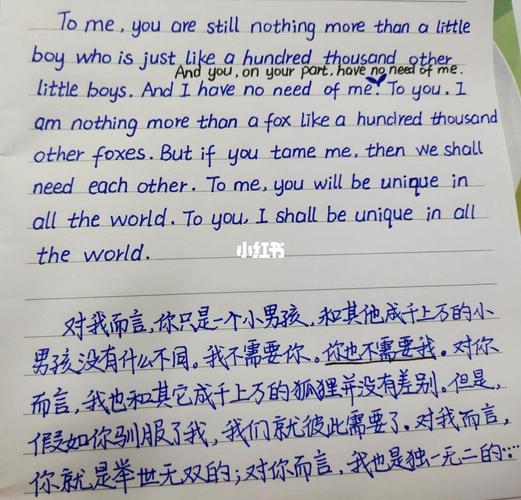 To me, you are still nothing more than a little
boy who is just like a hundred thousand other
And you, on your part, have no need of me.
little boys. And I have no need of me. To you. I
am nothing more than a fox like a hundred thousand
other foxes. But if you tame me, then we shall
need each other. To me, you will be unique in
all the world. To you, I shall be unique in all
the world.
小红书
对我而言,你只是一个小男孩,和其他成千上万的小
男孩没有什么不同。我不需要你。你也不需要我。对你
而言,我也和其它成千上万的狐狸并没有差别。但是,
假如你驯服了我,我们就彼此需要了。对我而言,
你就是举世无双的;对你而言,我也是独一无二的…